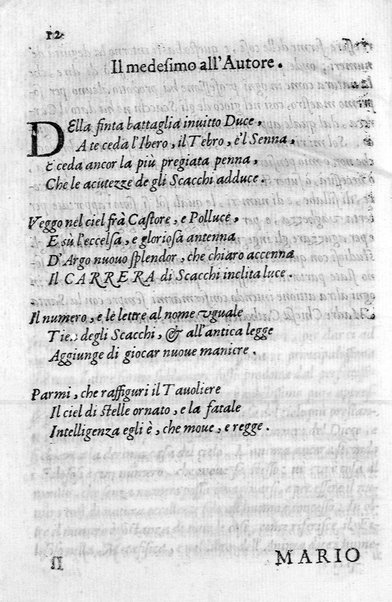 12
Il medesimo all'Autore.
DElla finta battaglia inuitto Duce,
A te ceda l'Ibero, il Tebro, e'l Senna,
E ceda ancor la più pregiata penna,
Che le acutezze de gli Scacchi adduce.
Veggo nel ciel frà Castore, e Polluce,
E sù l'eccelsa, e gloriosa antenna
D'Argo nuouo splendor, che chiaro accenna
Il CARRERA di Scacchi inclita luce.
Il numero, e le lettre al nome vguale
Tie.. degli Scacchi, & all'antica legge
Aggiunge di giocar nuoue maniere.
Parmi, che raffiguri il Tauoliere
Il ciel di stelle ornato, e la fatale
Intelligenza egli è, che moue, e regge.
MARIO